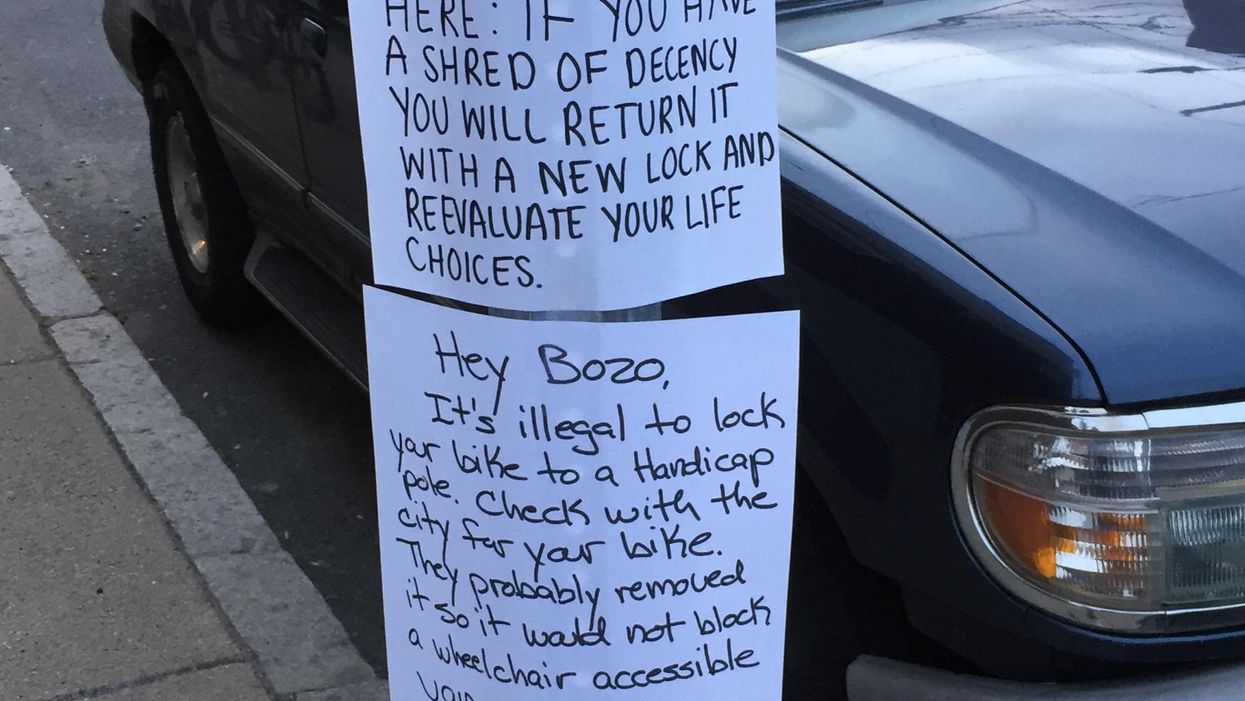 HERE: IF YOU HAVE
A SHRED OF DECENCY
YOU WILL RETURN IT
WITH A NEW LOCK AND
REEVALUATE YOUR LIFE
CHOICES.
Hey Bozo,
It's illegal to lock
your bike to a Handicap
pole. Check with the
city for your bike.
They probably removed
it so it would not block
a wheelchair accessible